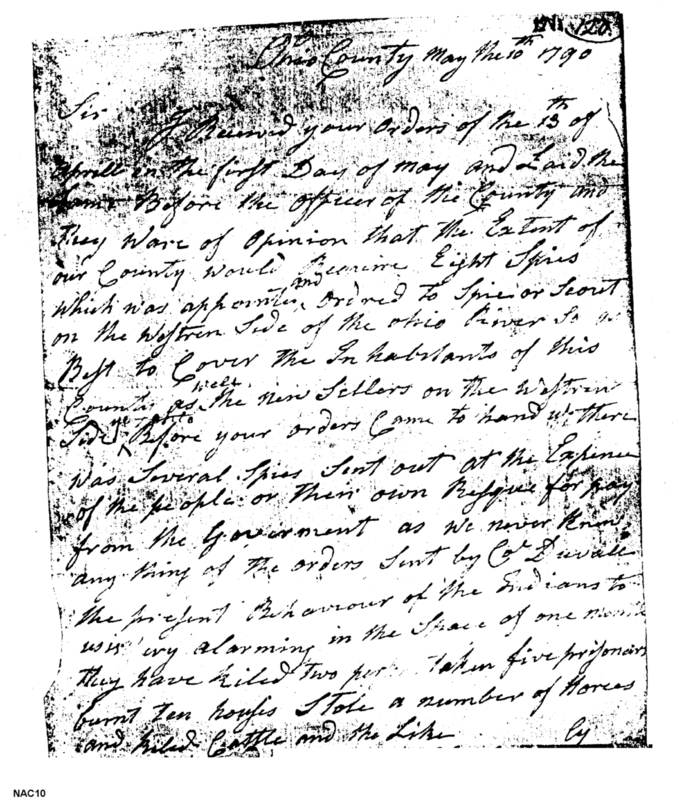 Ohio County May the 10th 1790
Sir
I Received your Orders of the 13th of
Aprill in the first Day of May and Laid the
Same Before the Officer of the County and
they Ware of Opinion that the Extent of
our County would Require Eight Spies
which was appointed and Ordred to Spie or Scout
on the Westren Side of the Ohio River So as
Best to Cover the Inhabitants of this
County as well the new Setlers on the Westren
Side Before your orders Came to hand there
was Several Spies Sent out at the Expence
of the people or their own Resque for pay
from the Goverment as we never Knew
any thing of the orders Sent by Col Duvall
the present Behaviour of the Indians to
us is very alarming in the Space of one month
they have kiled two taken five prisonars
burnt ten houses Stole a number of Horces
and kiled Cattle and the Like
by
NAC10